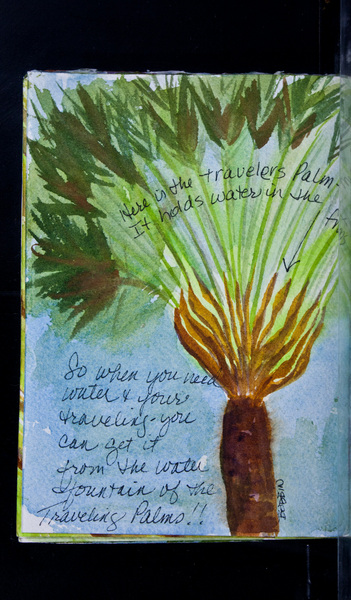 Here is the travelers Palm.
It holds water in the
So when you need
water & your
traveling-you
can get it
from the water
fountain of the
Traveling Palms!!